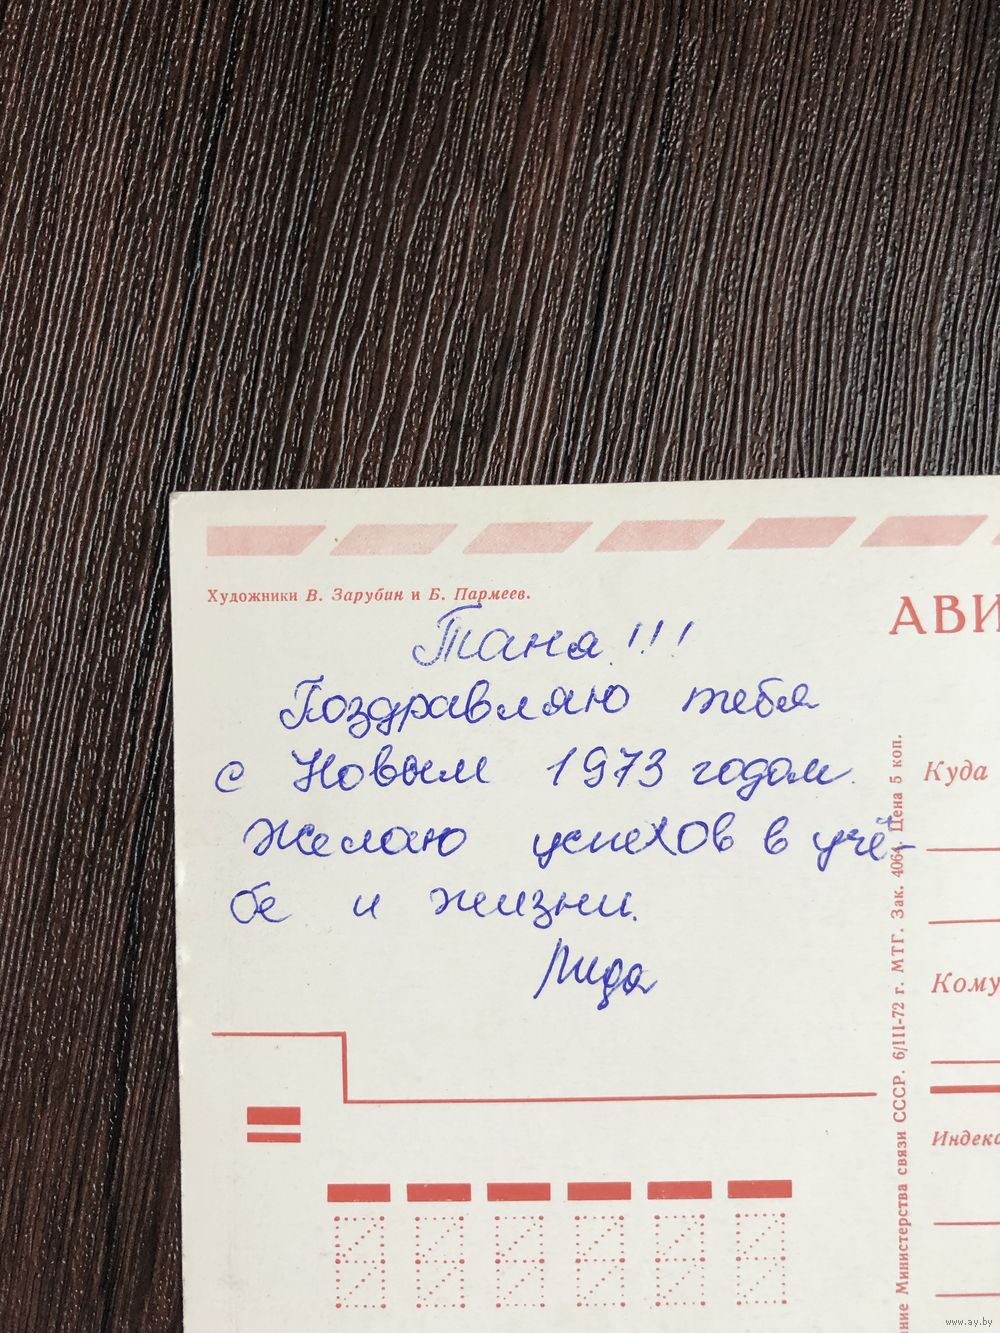 Художники В. Зарубин и Б. Пармеев.
Таня!!!
Поздравляю тебя
с Новым 1973 годом.
Желаю успехов в учё-
бе и жизни.
Лида
АВИ
Куда
Кому
Индекс
ние Министерства связи СССР. 6/III-72 г. МТГ. Зак. 4064 Цена 5 коп.
www.ay.by